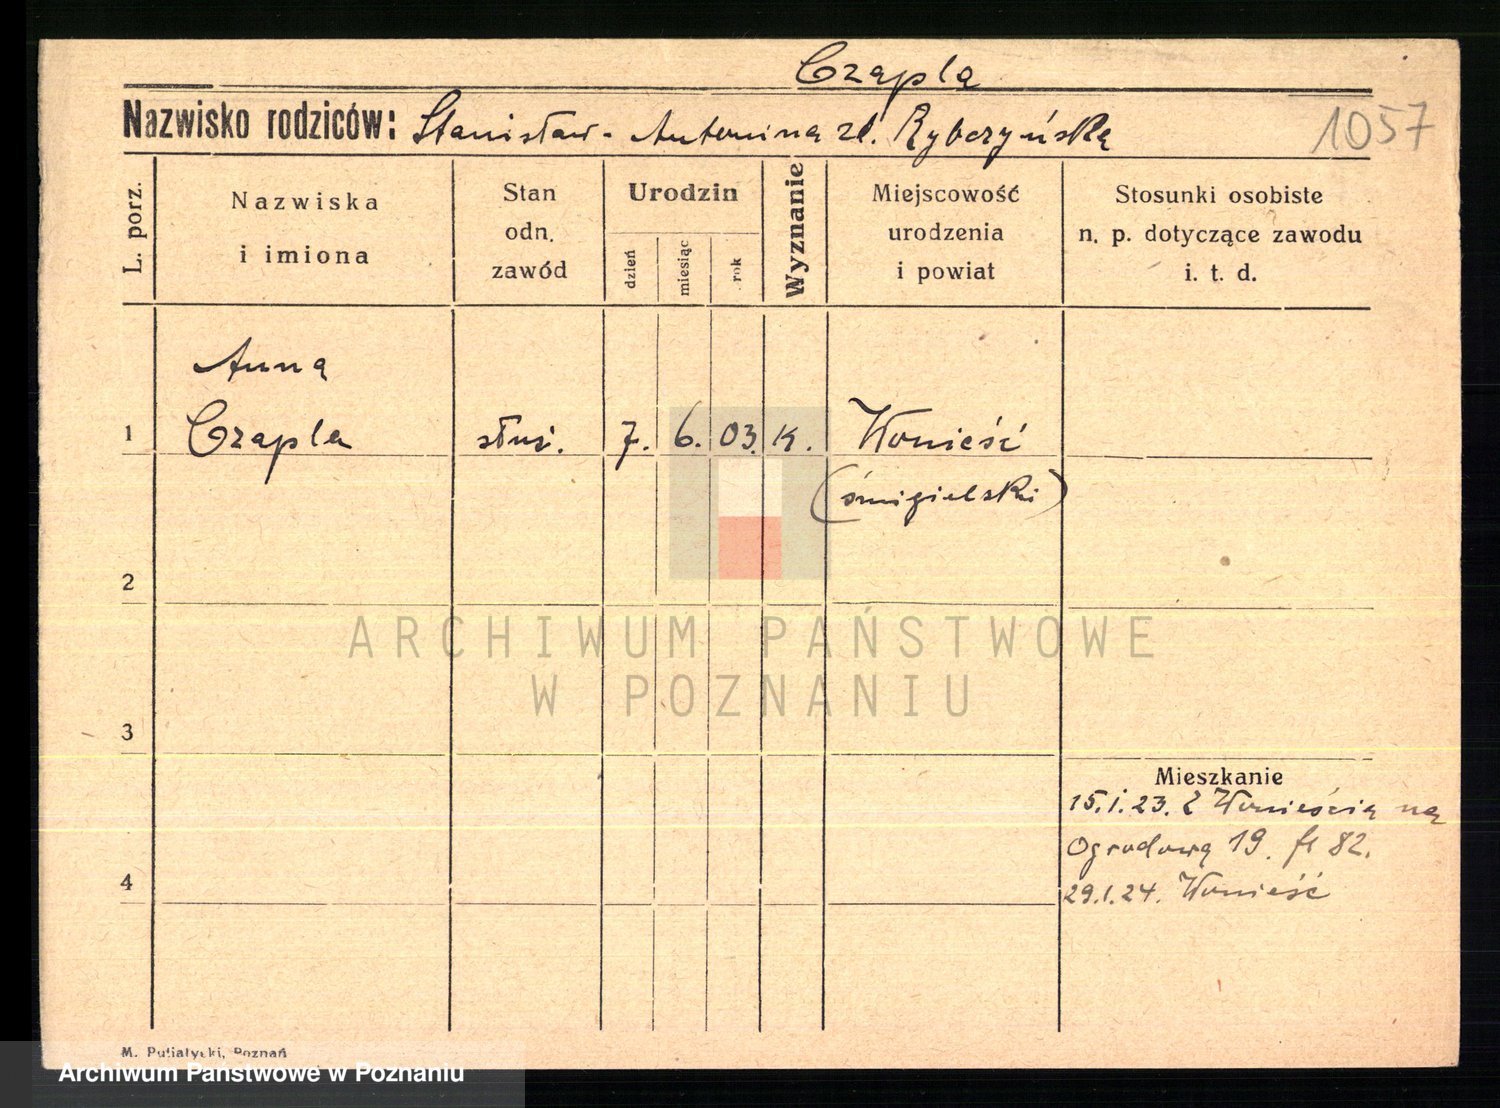 Czapla
Nazwisko rodziców: Stanisław - Antonina zd. Rybczyńska
1057
L. porz.
Nazwiska
i imiona
Stan
odn.
zawód
Urodzin
dzień
miesiąc
rok
Wyznanie
Miejscowość
urodzenia
i powiat
Stosunki osobiste
n. p. dotyczące zawodu
i. t. d.
Anna
1 Czapla służ. 7. 6. 03. k. Wonieść
(śmigielski)
2
ARCHIWUM PAŃSTWOWE
W POZNANIU
3
Mieszkanie
15.1.23. Z Wonieścia na
Ogrodową 19. fr 82.
4
29.1.24. Wonieść
M. Putiatycki, Poznań
Archiwum Państwowe w Poznaniu